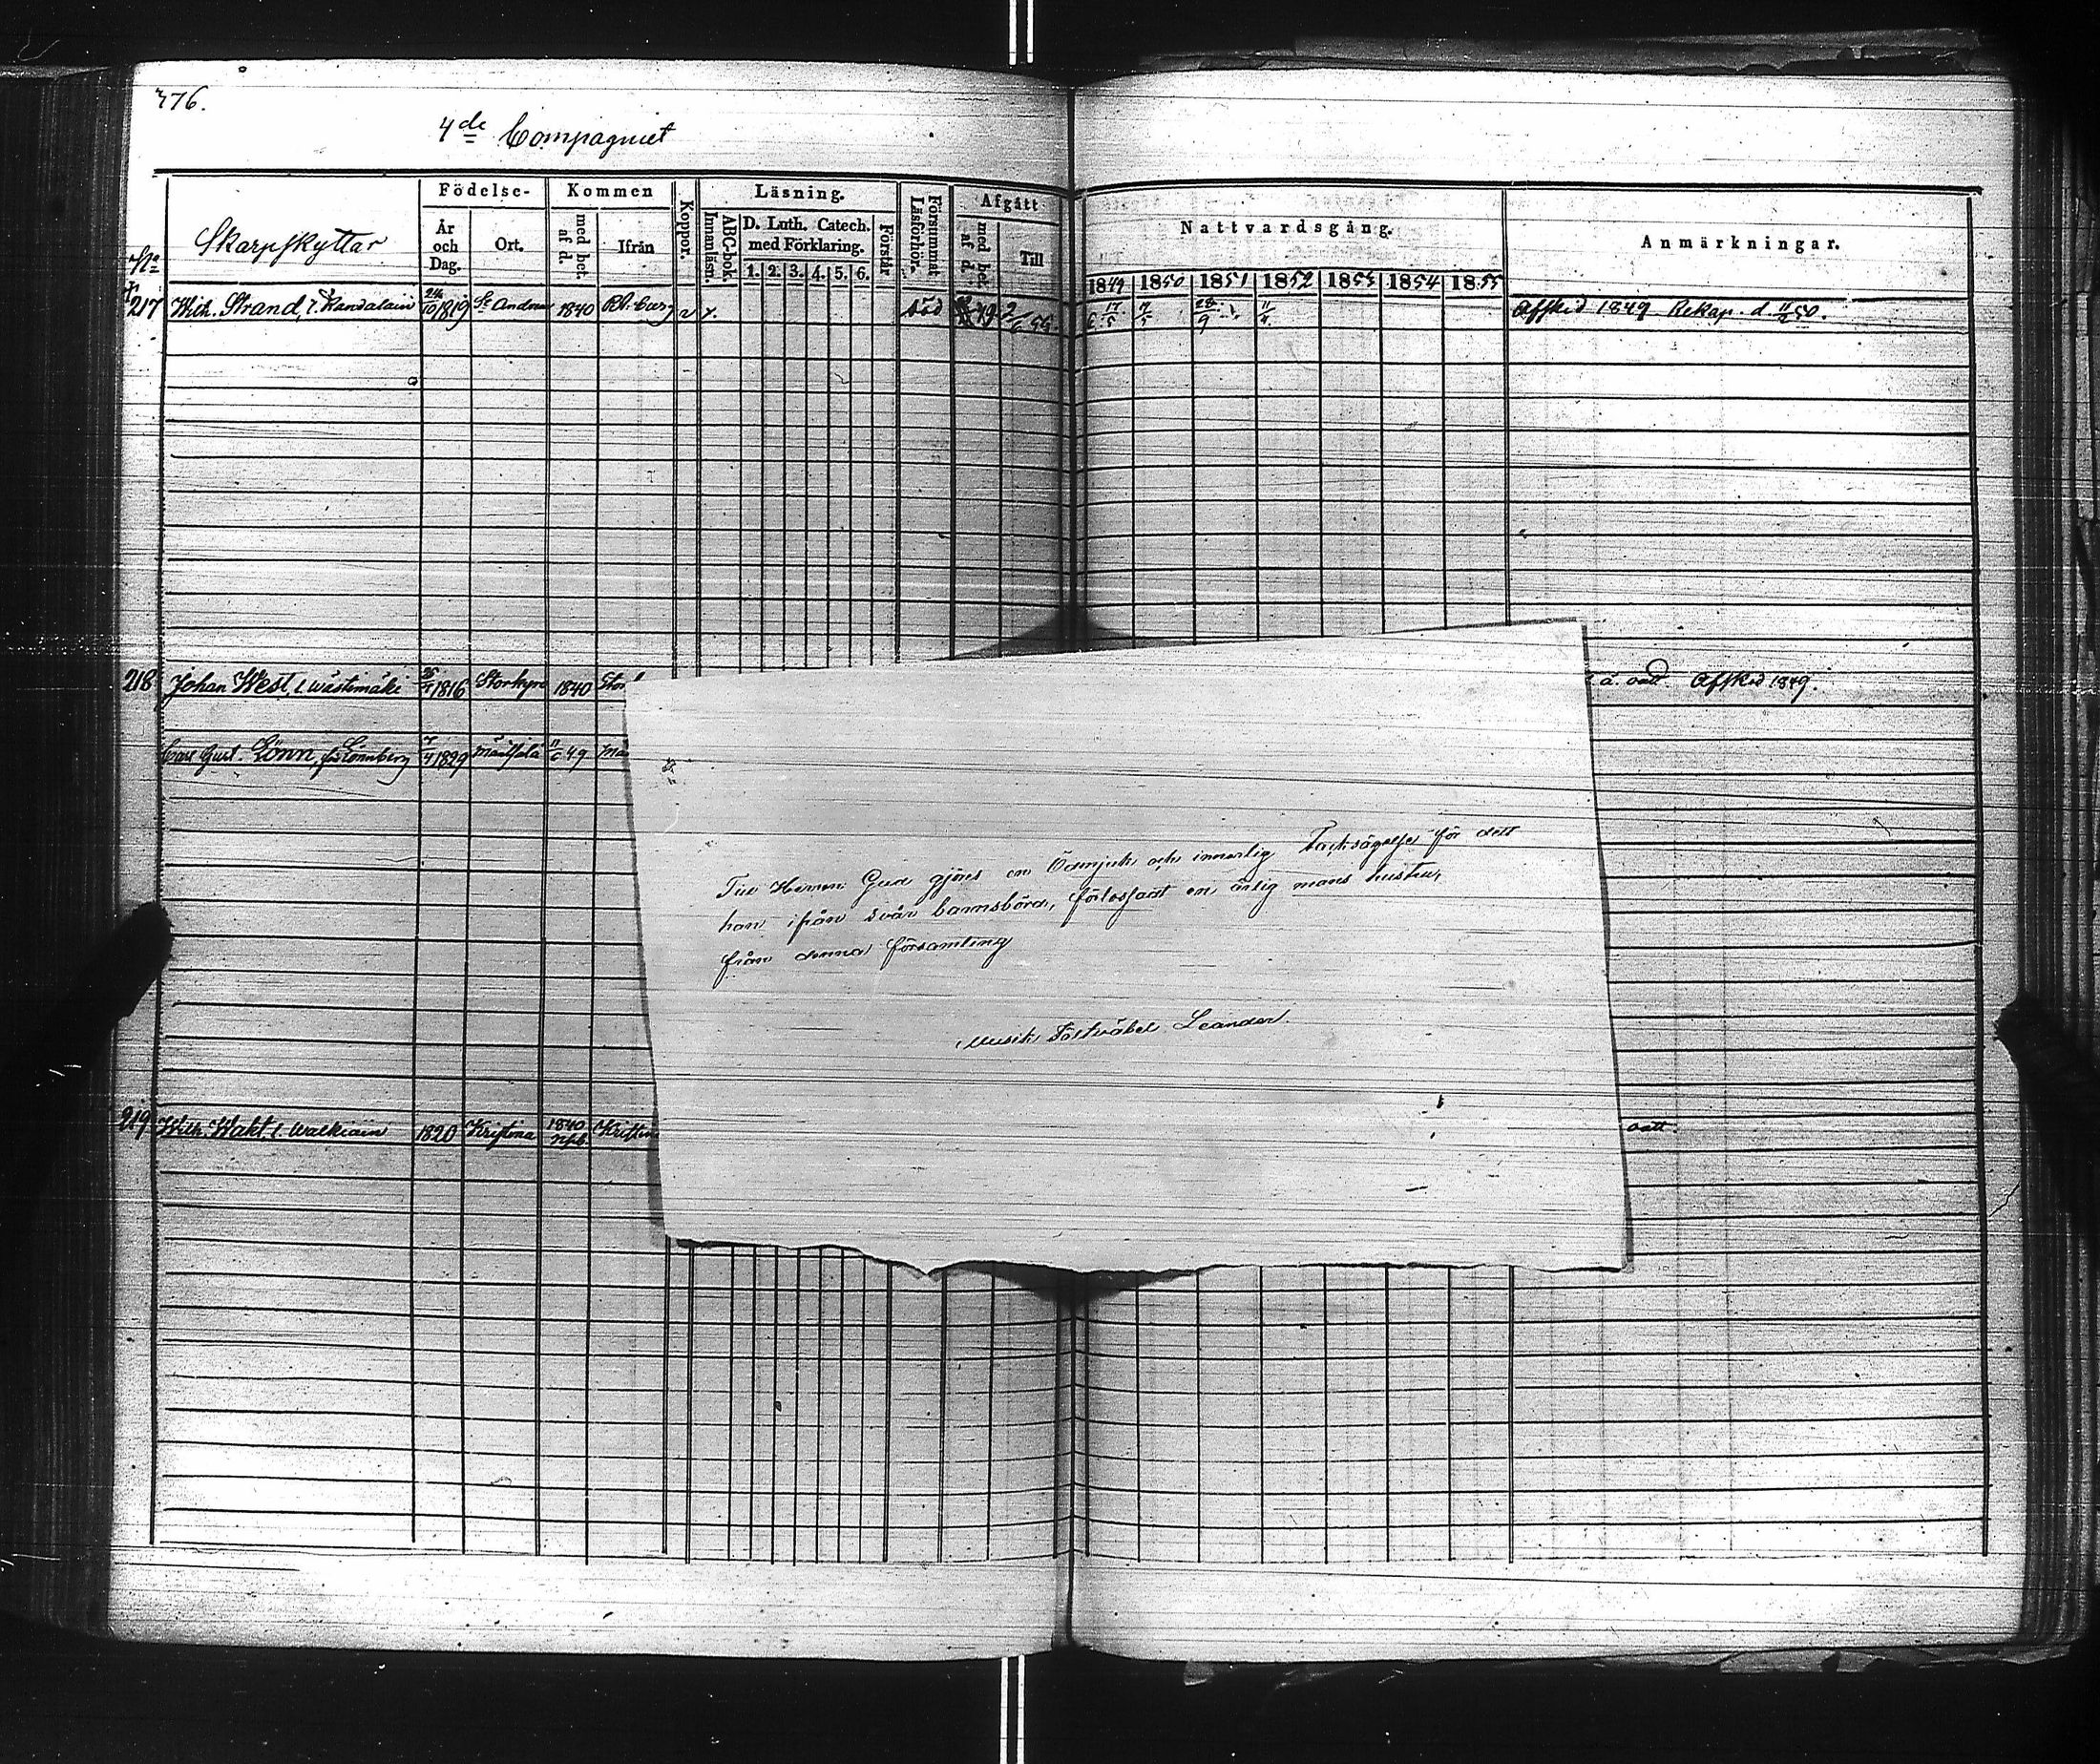 776.
4de Compagniet
No Skarpskyttar Födelse- År och Dag. Ort. Kommen med bet. af d. Ifrån Koppor. Läsning. ABC-bok. Innanläsn. D. Luth. Catech. med Förklaring. 1. 2. 3. 4. 5. 6. Förstår Försummat Läsförhör. Afgått med bet. af d. Till Nattvardsgång. 1849 1850 1851 1852 1853 1854 1855 Anmärkningar.
217 Wilh. Strand, 24/10 1819 St Andreae 1840 död 2/6 55 17/5 11/4 Afsked 1849 Rekap. d. 50.
218 Johan West, l. Wästimäki 1816 Storkyro 1840 Afsked 1849.
Carl Gust. Lönn, för Lönnberg 1829 Mäntsälä 11/6 49
219 Wilh. Wakt l. Walkiain 1820 Kristina 1840 Kristina
Till Herren Gud gjöres en Ödmjuk och innerlig Tacksägelse för dett
han ifrån svår barnsbörd, förlossadt en ärlig mans hustru,
från denna församling
Musik Fältväbel Leander.